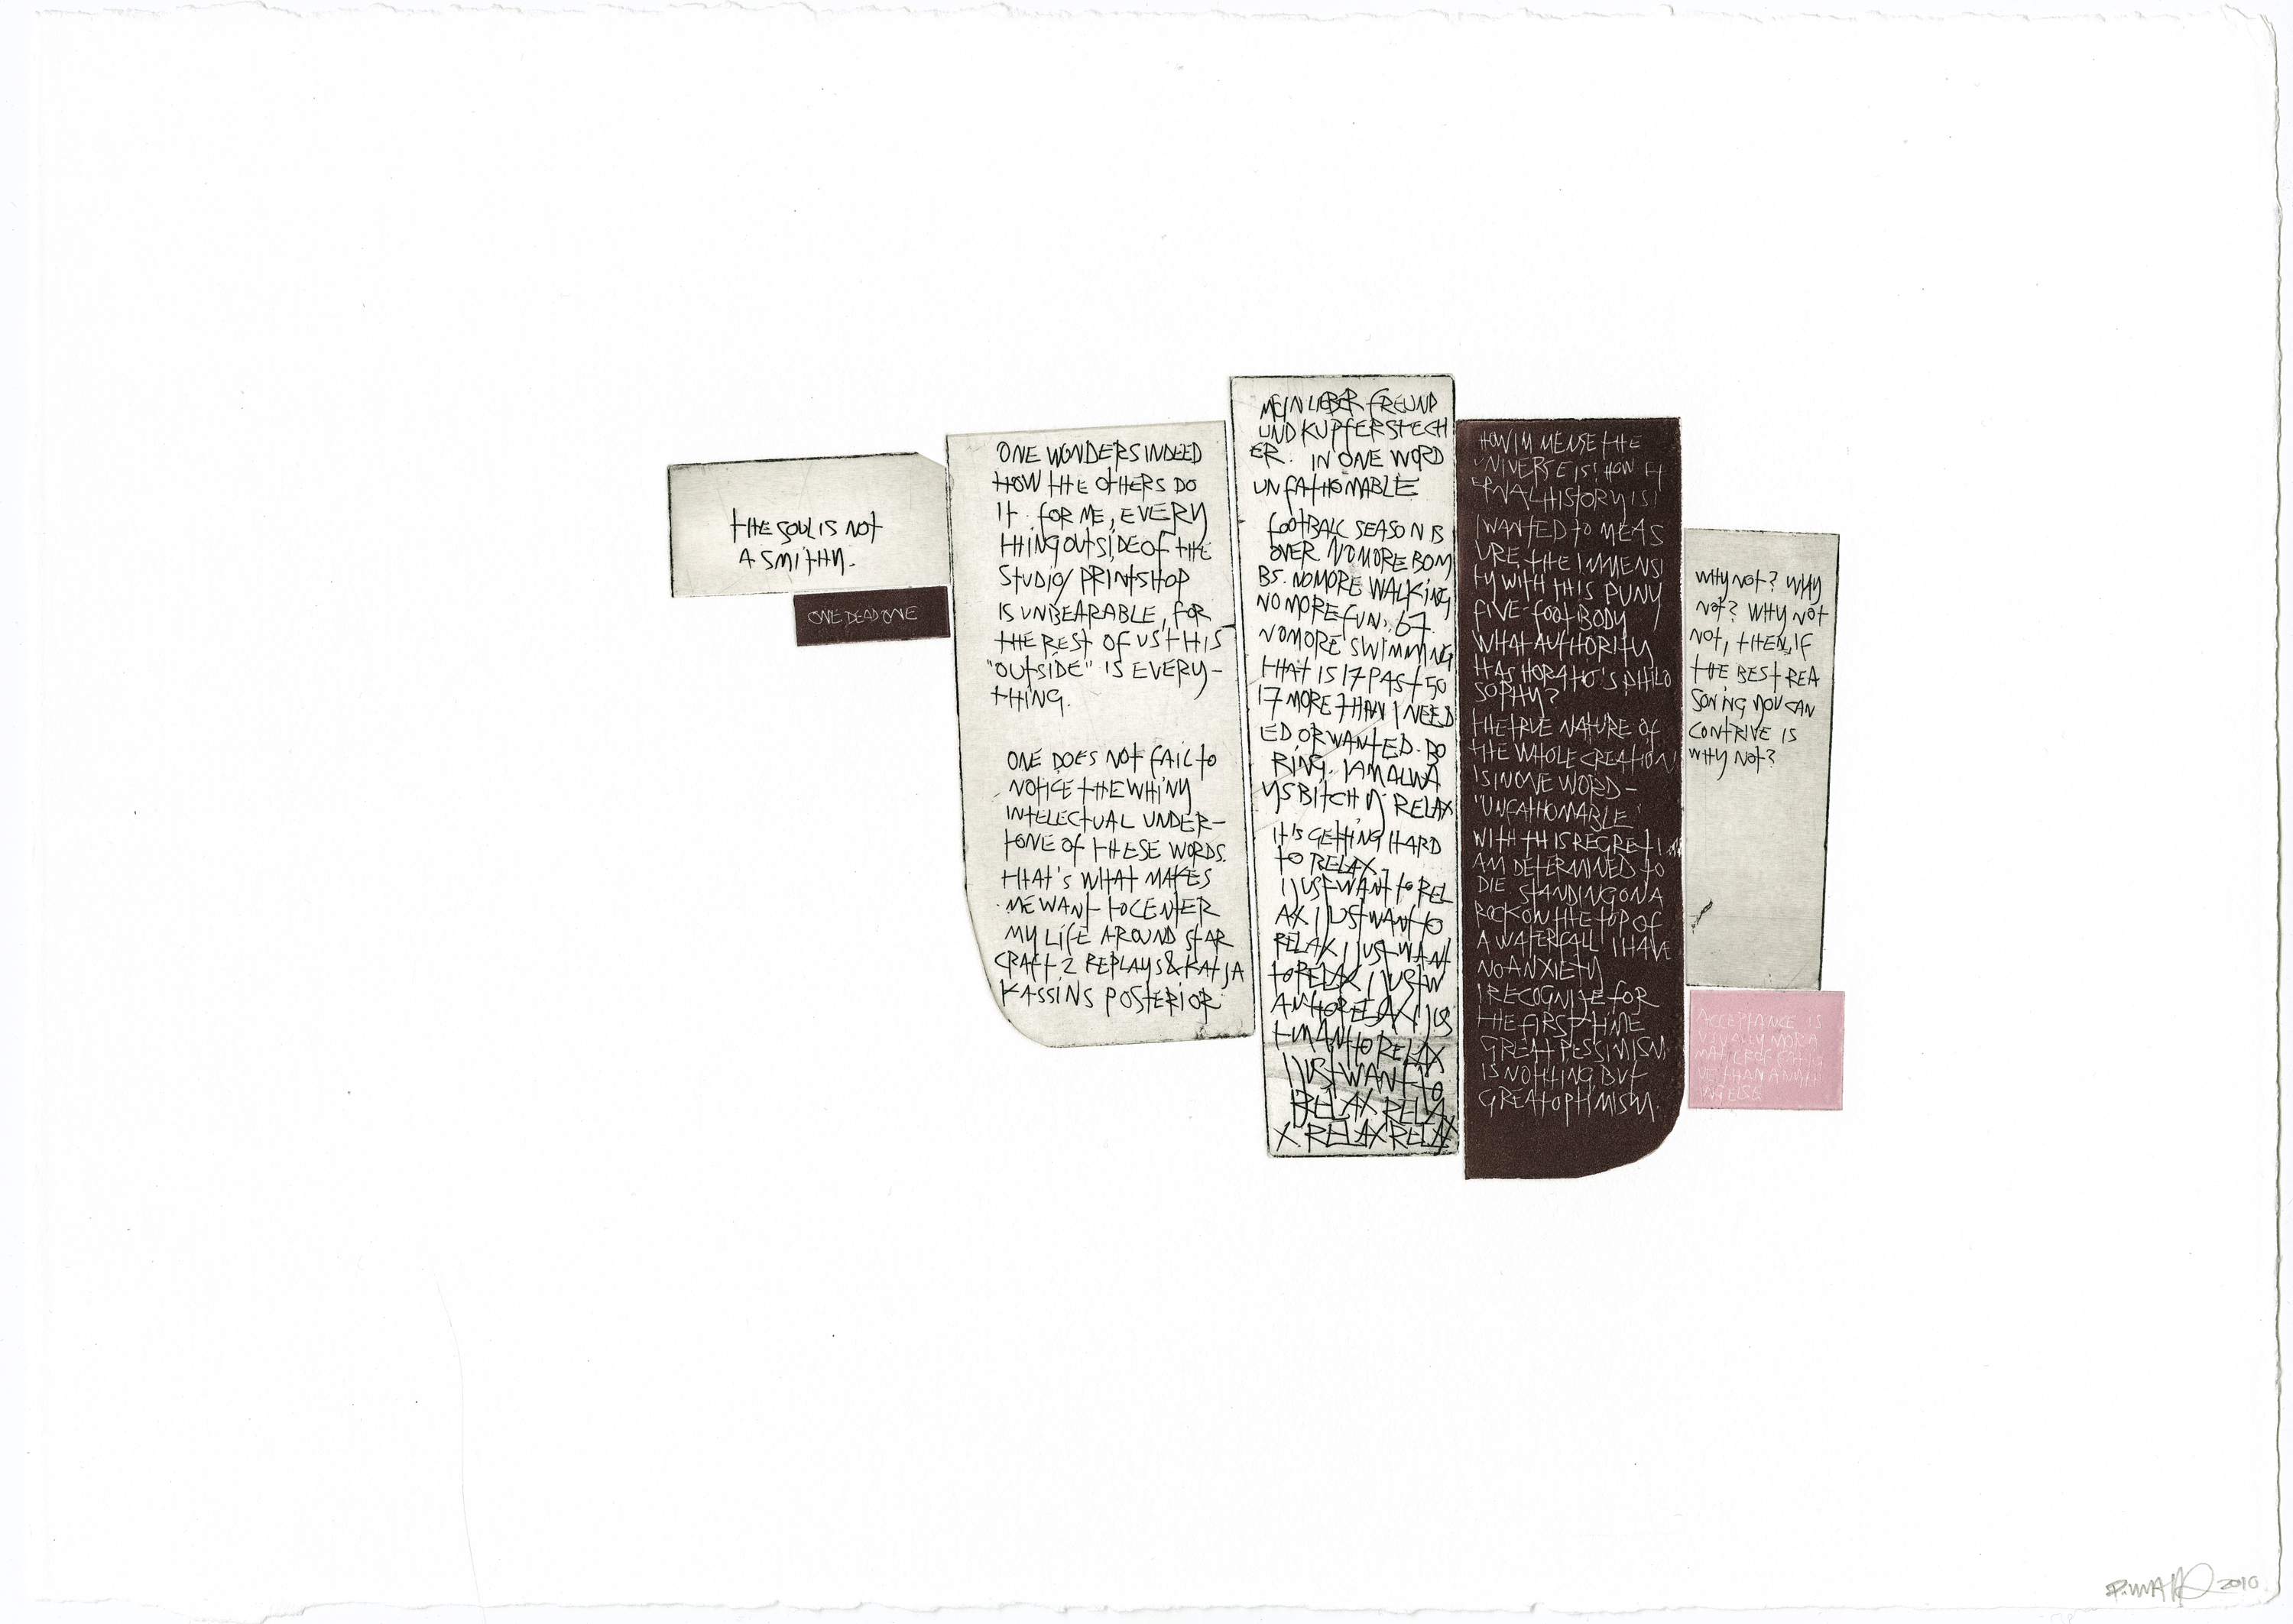 THE SOUL IS NOT
A SMITHY.
ONE DEAD ONE
ONE WONDERS INDEED
HOW THE OTHERS DO
IT. FOR ME, EVERY
THING OUTSIDE OF THE
STUDIO/PRINTSHOP
IS UNBEARABLE, FOR
THE REST OF US THIS
"OUTSIDE" IS EVERY-
THING.
ONE DOES NOT FAIL TO
NOTICE THE WHINY
INTELECTUAL UNDER-
TONE OF THESE WORDS.
THAT'S WHAT MAKES
ME WANT TO CENTER
MY LIFE AROUND STAR
CRAFT 2 REPLAYS & KATJA
KASSINS POSTERIOR.
MEIN LIEBER FREUND
UND KUPFERSTECH
ER. IN ONE WORD
UNFATHOMABLE
FOOTBALL SEASON IS
OVER NO MORE BOM
BS. NO MORE WALKING
NO MORE FUN. 67.
NO MORE SWIMMING
THAT IS 17 PAST 50
17 MORE THAN I NEED
ED OR WANTED. BO
RING. I AM ALWA
YS BITCHY. RELAX
IT'S GETTING HARD
TO RELAX.
I JUST WANT TO REL
AX I JUST WANT TO
RELAX I JUST WANT
TO RELAX I JUST W
ANT TO RELAX I JUS
T WANT TO RELAX
I JUST WANT TO
RELAX RELA
X. RELAX RELAX
HOW IMMENSE THE
UNIVERSE IS! HOW ET
ERNAL HISTORY IS!
I WANTED TO MEAS
URE THE IMMENSI
TY WITH THIS PUNY
FIVE-FOOT BODY
WHAT AUTHORITY
HAS HORATIO'S PHILO
SOPHY?
THE TRUE NATURE OF
THE WHOLE CREATION
IS IN ONE WORD –
"UNFATHOMABLE"
WITH THIS REGRET I
AM DETERMINED TO
DIE. STANDING ON A
ROCK ON THE TOP OF
A WATERFALL I HAVE
NO ANXIETY
I RECOGNIZE FOR
THE FIRST TIME
GREAT PESSIMISM
IS NOTHING BUT
GREAT OPTIMISM.
WHY NOT? WHY
NOT? WHY NOT
NOT, THEN, IF
THE BEST REA
SONING YOU CAN
CONTRIVE IS
WHY NOT?
ACCEPTANCE IS
USUALLY MORE A
MATTER OF FATIG
UE THAN ANYTH
ING ELSE
2010